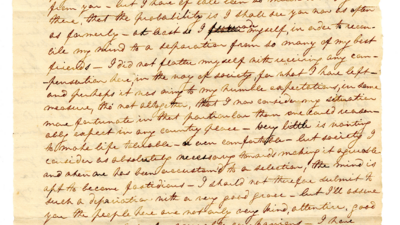 from you - but I have of late been so
there, that the probability is I shall see you now as often
as formerly - at best so I myself, in order to recon-
cile my mind to a separation from so many of my best
friends - I did not flatter myself with receiving any com-
pensation here, in the way of society, for what I have left -
and perhaps it was owing to my humble expectations, in some
measure, tho not altogether, that I now consider my situation
more fortunate in that particular than one could reason-
ally expect in any country place - very little is wanting
to make life tolerable - even comfortable - but society I
consider as absolutely necessary towards making it agreeable
and when one has been accustom'd to a selection, the mind is
apt to become fastidious - I should not therefore submit to
such a depriation with a very good grace - but I'll assure
you the people here are not only very kind, attentive, good
I have